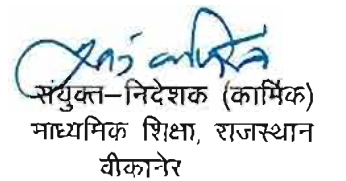 संयुक्त-निदेशक (कार्मिक)
माध्यमिक शिक्षा, राजस्थान
वीकानेर